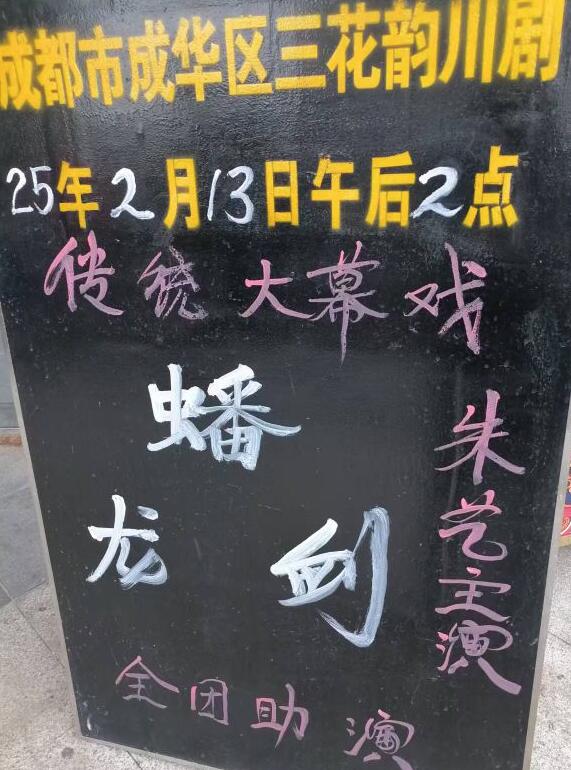 成都市成华区三花韵川剧
25年2月13日午后2点
传统大幕戏
蟠
龙剑
朱艺主演
全团助演